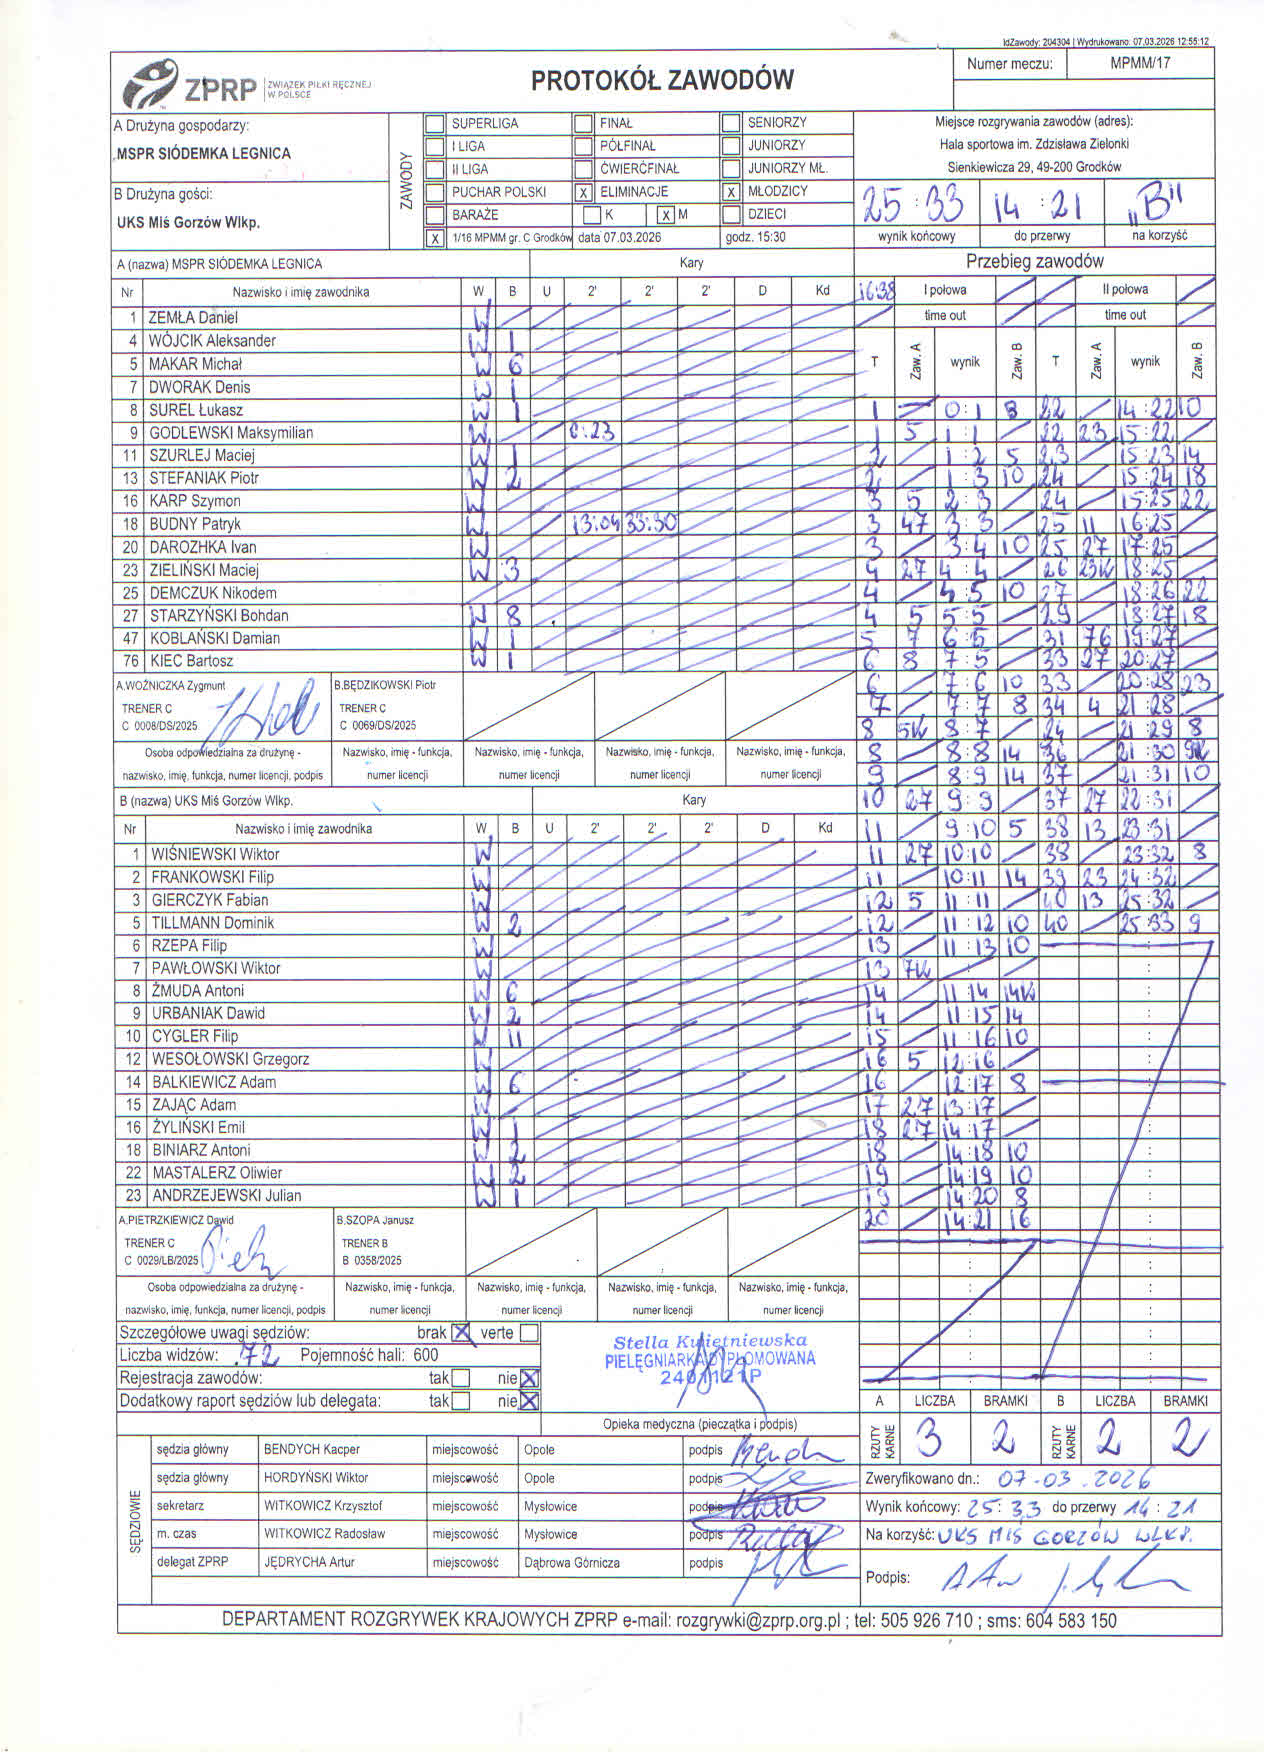 IdZawody: 204304 | Wydrukowano: 07.03.2026 12:55:12
ZPRP ZWIĄZEK PIŁKI RĘCZNEJ W POLSCE
PROTOKÓŁ ZAWODÓW
Numer meczu: MPMM/17
A Drużyna gospodarzy:
MSPR SIÓDEMKA LEGNICA
B Drużyna gości:
UKS Miś Gorzów Wlkp.
ZAWODY
SUPERLIGA FINAŁ SENIORZY
I LIGA PÓŁFINAŁ JUNIORZY
II LIGA ĆWIERĆFINAŁ JUNIORZY MŁ.
PUCHAR POLSKI X ELIMINACJE X MŁODZICY
BARAŻE K X M DZIECI
X 1/16 MPMM gr. C Grodków data 07.03.2026 godz. 15:30
Miejsce rozgrywania zawodów (adres):
Hala sportowa im. Zdzisława Zielonki
Sienkiewicza 29, 49-200 Grodków
25:33 14:21 "B"
wynik końcowy do przerwy na korzyść
A (nazwa) MSPR SIÓDEMKA LEGNICA Kary
Nr Nazwisko i imię zawodnika W B U 2' 2' 2' D Kd
1 ZEMŁA Daniel W
4 WÓJCIK Aleksander W 1
5 MAKAR Michał W 6
7 DWORAK Denis W 1
8 SUREL Łukasz W 1
9 GODLEWSKI Maksymilian W 8:23
11 SZURLEJ Maciej W 1
13 STEFANIAK Piotr W 2
16 KARP Szymon W
18 BUDNY Patryk W 13:04 33:30
20 DAROZHKA Ivan W
23 ZIELIŃSKI Maciej W 3
25 DEMCZUK Nikodem
27 STARZYŃSKI Bohdan W 8
47 KOBLAŃSKI Damian W 1
76 KIEC Bartosz W 1
A.WOŹNICZKA Zygmunt B.BĘDZIKOWSKI Piotr
TRENER C TRENER C
C 0008/DS/2025 C 0069/DS/2025
Osoba odpowiedzialna za drużynę - Nazwisko, imię - funkcja, Nazwisko, imię - funkcja, Nazwisko, imię - funkcja, Nazwisko, imię - funkcja,
nazwisko, imię, funkcja, numer licencji, podpis numer licencji numer licencji numer licencji numer licencji
B (nazwa) UKS Miś Gorzów Wlkp. Kary
Nr Nazwisko i imię zawodnika W B U 2' 2' 2' D Kd
1 WIŚNIEWSKI Wiktor W
2 FRANKOWSKI Filip W
3 GIERCZYK Fabian W
5 TILLMANN Dominik W 2
6 RZEPA Filip W
7 PAWŁOWSKI Wiktor W
8 ŻMUDA Antoni W 6
9 URBANIAK Dawid W 2
10 CYGLER Filip W 11
12 WESOŁOWSKI Grzegorz W
14 BALKIEWICZ Adam W 6
15 ZAJĄC Adam W
16 ŻYLIŃSKI Emil W 1
18 BINIARZ Antoni W 2
22 MASTALERZ Oliwier W 2
23 ANDRZEJEWSKI Julian W 1
A.PIETRZKIEWICZ Dawid B.SZOPA Janusz
TRENER C TRENER B
C 0029/LB/2025 B 0358/2025
Osoba odpowiedzialna za drużynę - Nazwisko, imię - funkcja, Nazwisko, imię - funkcja, Nazwisko, imię - funkcja, Nazwisko, imię - funkcja,
nazwisko, imię, funkcja, numer licencji, podpis numer licencji numer licencji numer licencji numer licencji
Przebieg zawodów
16:38 I połowa II połowa
time out time out
T Zaw. A wynik Zaw. B T Zaw. A wynik Zaw. B
1 0:1 8 22 14:22 10
1 5 1:1 22 23 15:22
2 1:2 5 23 15:23 14
2 1:3 10 24 15:24 18
3 5 2:3 24 15:25 22
3 47 3:3 25 11 16:25
3 3:4 10 25 27 17:25
4 27 4:4 26 23K 18:25
4 4:5 10 27 18:26 22
4 5 5:5 29 18:27 18
5 7 6:5 31 76 19:27
6 8 7:5 33 27 20:27
6 7:6 10 33 20:28 23
7 7:7 8 34 4 21:28
8 5K 8:7 21:29 8
8 8:8 14 36 21:30 9K
9 8:9 14 37 21:31 10
10 27 9:9 37 27 22:31
11 9:10 5 38 13 23:31
11 27 10:10 38 23:32 8
11 10:11 14 39 23 24:32
12 5 11:11 40 13 25:32
12 11:12 10 40 25:33 9
13 11:13 10
13 7K
14 11:14 14K
14 11:15 14
15 11:16 10
16 5 12:16
16 12:17 8
17 27 13:17
18 27 14:17
18 14:18 10
19 14:19 10
19 14:20 8
20 14:21 16
Szczegółowe uwagi sędziów: brak X verte
Liczba widzów: 72 Pojemność hali: 600
Rejestracja zawodów: tak nie X
Dodatkowy raport sędziów lub delegata: tak nie X
Stella Kwietniewska
PIELĘGNIARKA DYPLOMOWANA
2401121P
Opieka medyczna (pieczątka i podpis)
A LICZBA BRAMKI B LICZBA BRAMKI
RZUTY KARNE 3 2 RZUTY KARNE 2 2
SĘDZIOWIE
sędzia główny BENDYCH Kacper miejscowość Opole podpis
sędzia główny HORDYŃSKI Wiktor miejscowość Opole podpis
sekretarz WITKOWICZ Krzysztof miejscowość Mysłowice podpis
m. czas WITKOWICZ Radosław miejscowość Mysłowice podpis
delegat ZPRP JĘDRYCHA Artur miejscowość Dąbrowa Górnicza podpis
Zweryfikowano dn.: 07-03.2026
Wynik końcowy: 25:33 do przerwy 14:21
Na korzyść: UKS MIŚ GORZÓW WLKP.
Podpis:
DEPARTAMENT ROZGRYWEK KRAJOWYCH ZPRP e-mail: rozgrywki@zprp.org.pl ; tel: 505 926 710 ; sms: 604 583 150